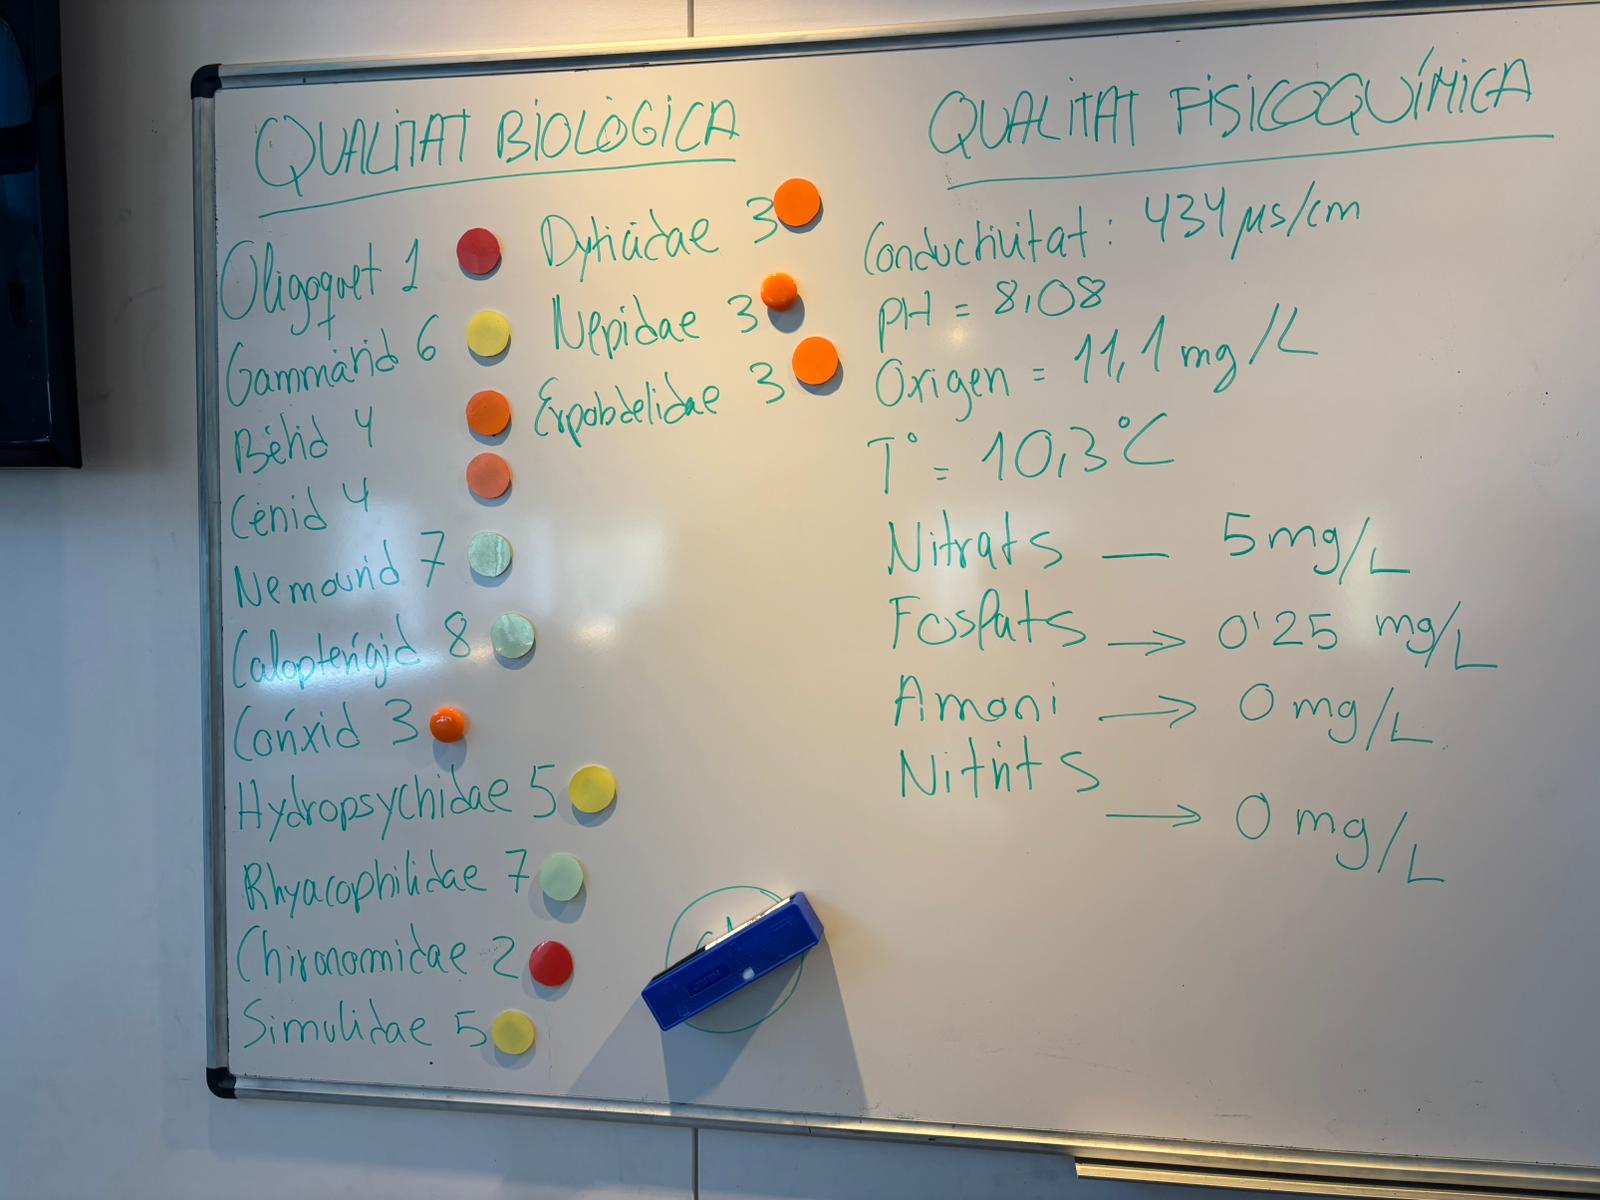 QUALITAT BIOLÒGICA
Oligoquet 1
Gammàrid 6
Bètid 4
Cènid 4
Nemoúrid 7
Calopterígid 8
Coríxid 3
Hydropsychidae 5
Rhyacophilidae 7
Chironomidae 2
Simulidae 5
Dyticidae 3
Nepidae 3
Erpobdelidae 3
QUALITAT FISICOQUÍMICA
Conductivitat: 434 µs/cm
pH = 8,08
Oxigen = 11,1 mg/L
T° = 10,3°C
Nitrats — 5 mg/L
Fosfats → 0'25 mg/L
Amoni → 0 mg/L
Nitrits → 0 mg/L